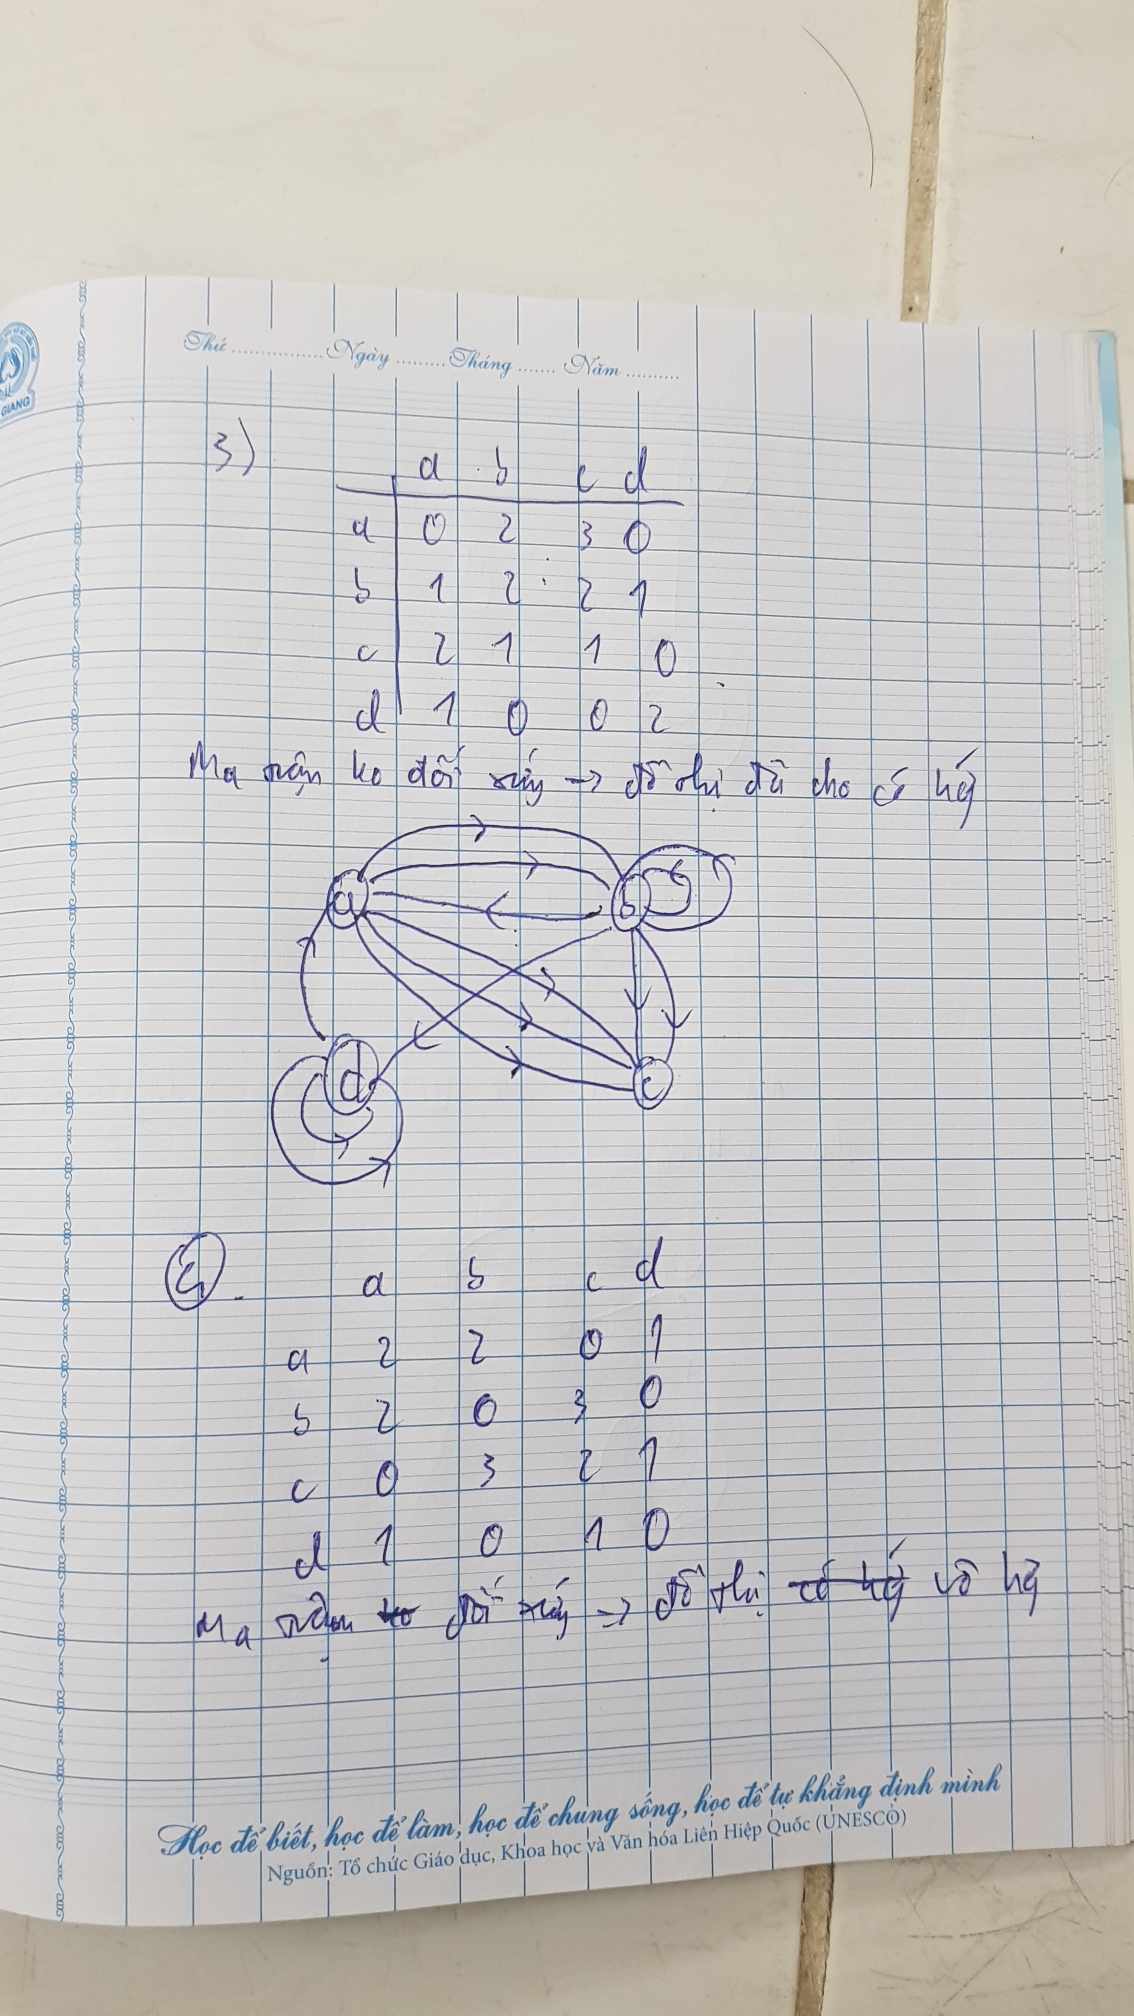 GIANG
Thứ ................ Ngày ......... Tháng ....... Năm ..........
3)
a b c d
a 0 2 3 0
b 1 2 2 1
c 2 1 1 0
d 1 0 0 2
Ma trận ko đối xứng → đồ thị đã cho có hg
a b
d c
a b c d
a 2 2 0 1
b 2 0 3 0
c 0 3 2 1
d 1 0 1 0
Ma trận ko đối xứng → đồ thị có hg vô hg
Học để biết, học để làm, học để chung sống, học để tự khẳng định mình
Nguồn: Tổ chức Giáo dục, Khoa học và Văn hóa Liên Hiệp Quốc (UNESCO)